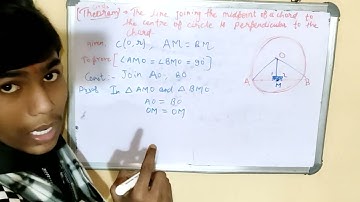 [Theorem] - The line joining the midpoint of a chord to
the centre of circle is perpendicular to the
chord.
Given C(O, r), AM = BM
To prove [∠AMO = ∠BMO = 90°]
Const:- Join AO, BO
Proof In △AMO and △BMO
AO = BO
OM = OM
O
A
M
B